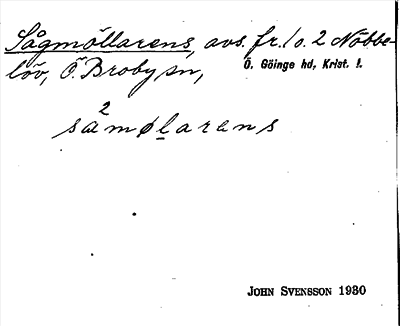 Sågmöllarens, avs. fr. 1 o. 2 Nöbbe-
löv, Ö. Broby sn,
Ö. Göinge hd, Krist. l.
2
såmølarens
JOHN SVENSSON 1930